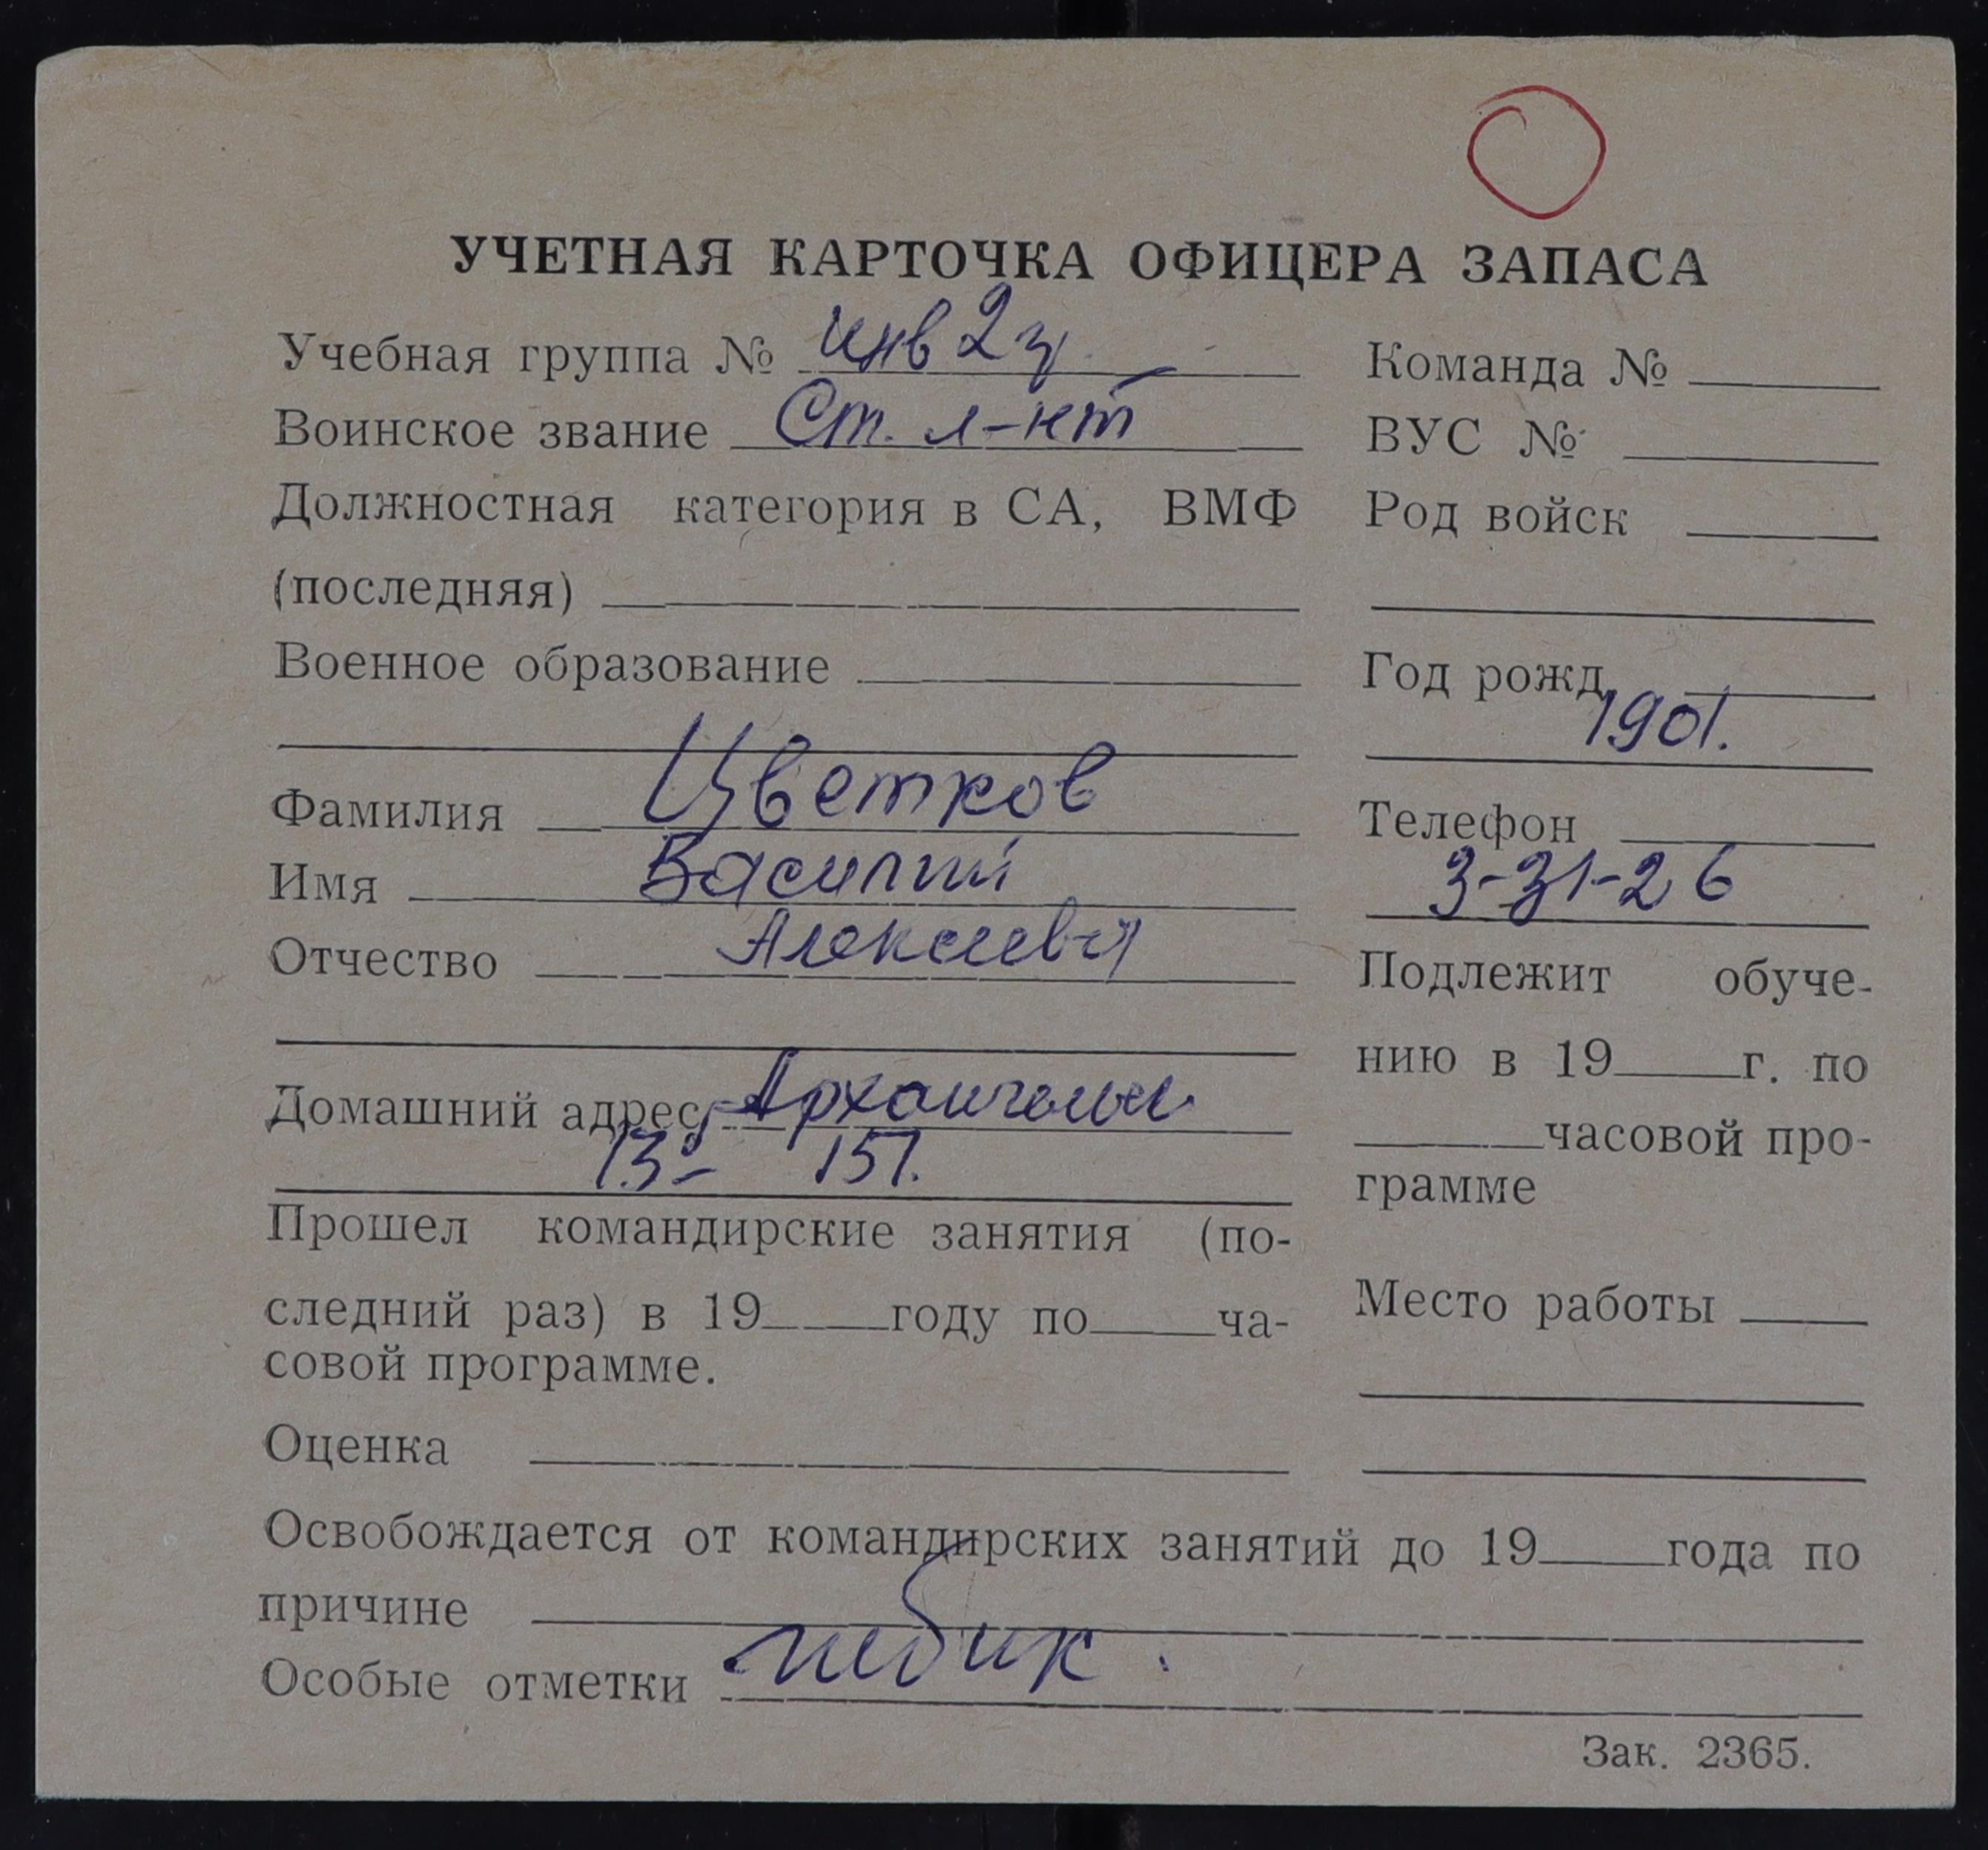 УЧЕТНАЯ КАРТОЧКА ОФИЦЕРА ЗАПАСА
Учебная группа № инв 2 г
Воинское звание Ст. л-нт
Должностная категория в СА, ВМФ
(последняя)
Военное образование
Фамилия Цветков
Имя Василий
Отчество Алексеевич
Домашний адрес Архангельск
13- 151.
Прошел командирские занятия (по-
следний раз) в 19 году по ча-
совой программе.
Оценка
Команда №
ВУС №
Род войск
Год рожд.
1901.
Телефон
3-31-26
Подлежит обуче-
нию в 19 г. по
часовой про-
грамме
Место работы
Освобождается от командирских занятий до 19 года по
причине
Особые отметки
Зак. 2365.